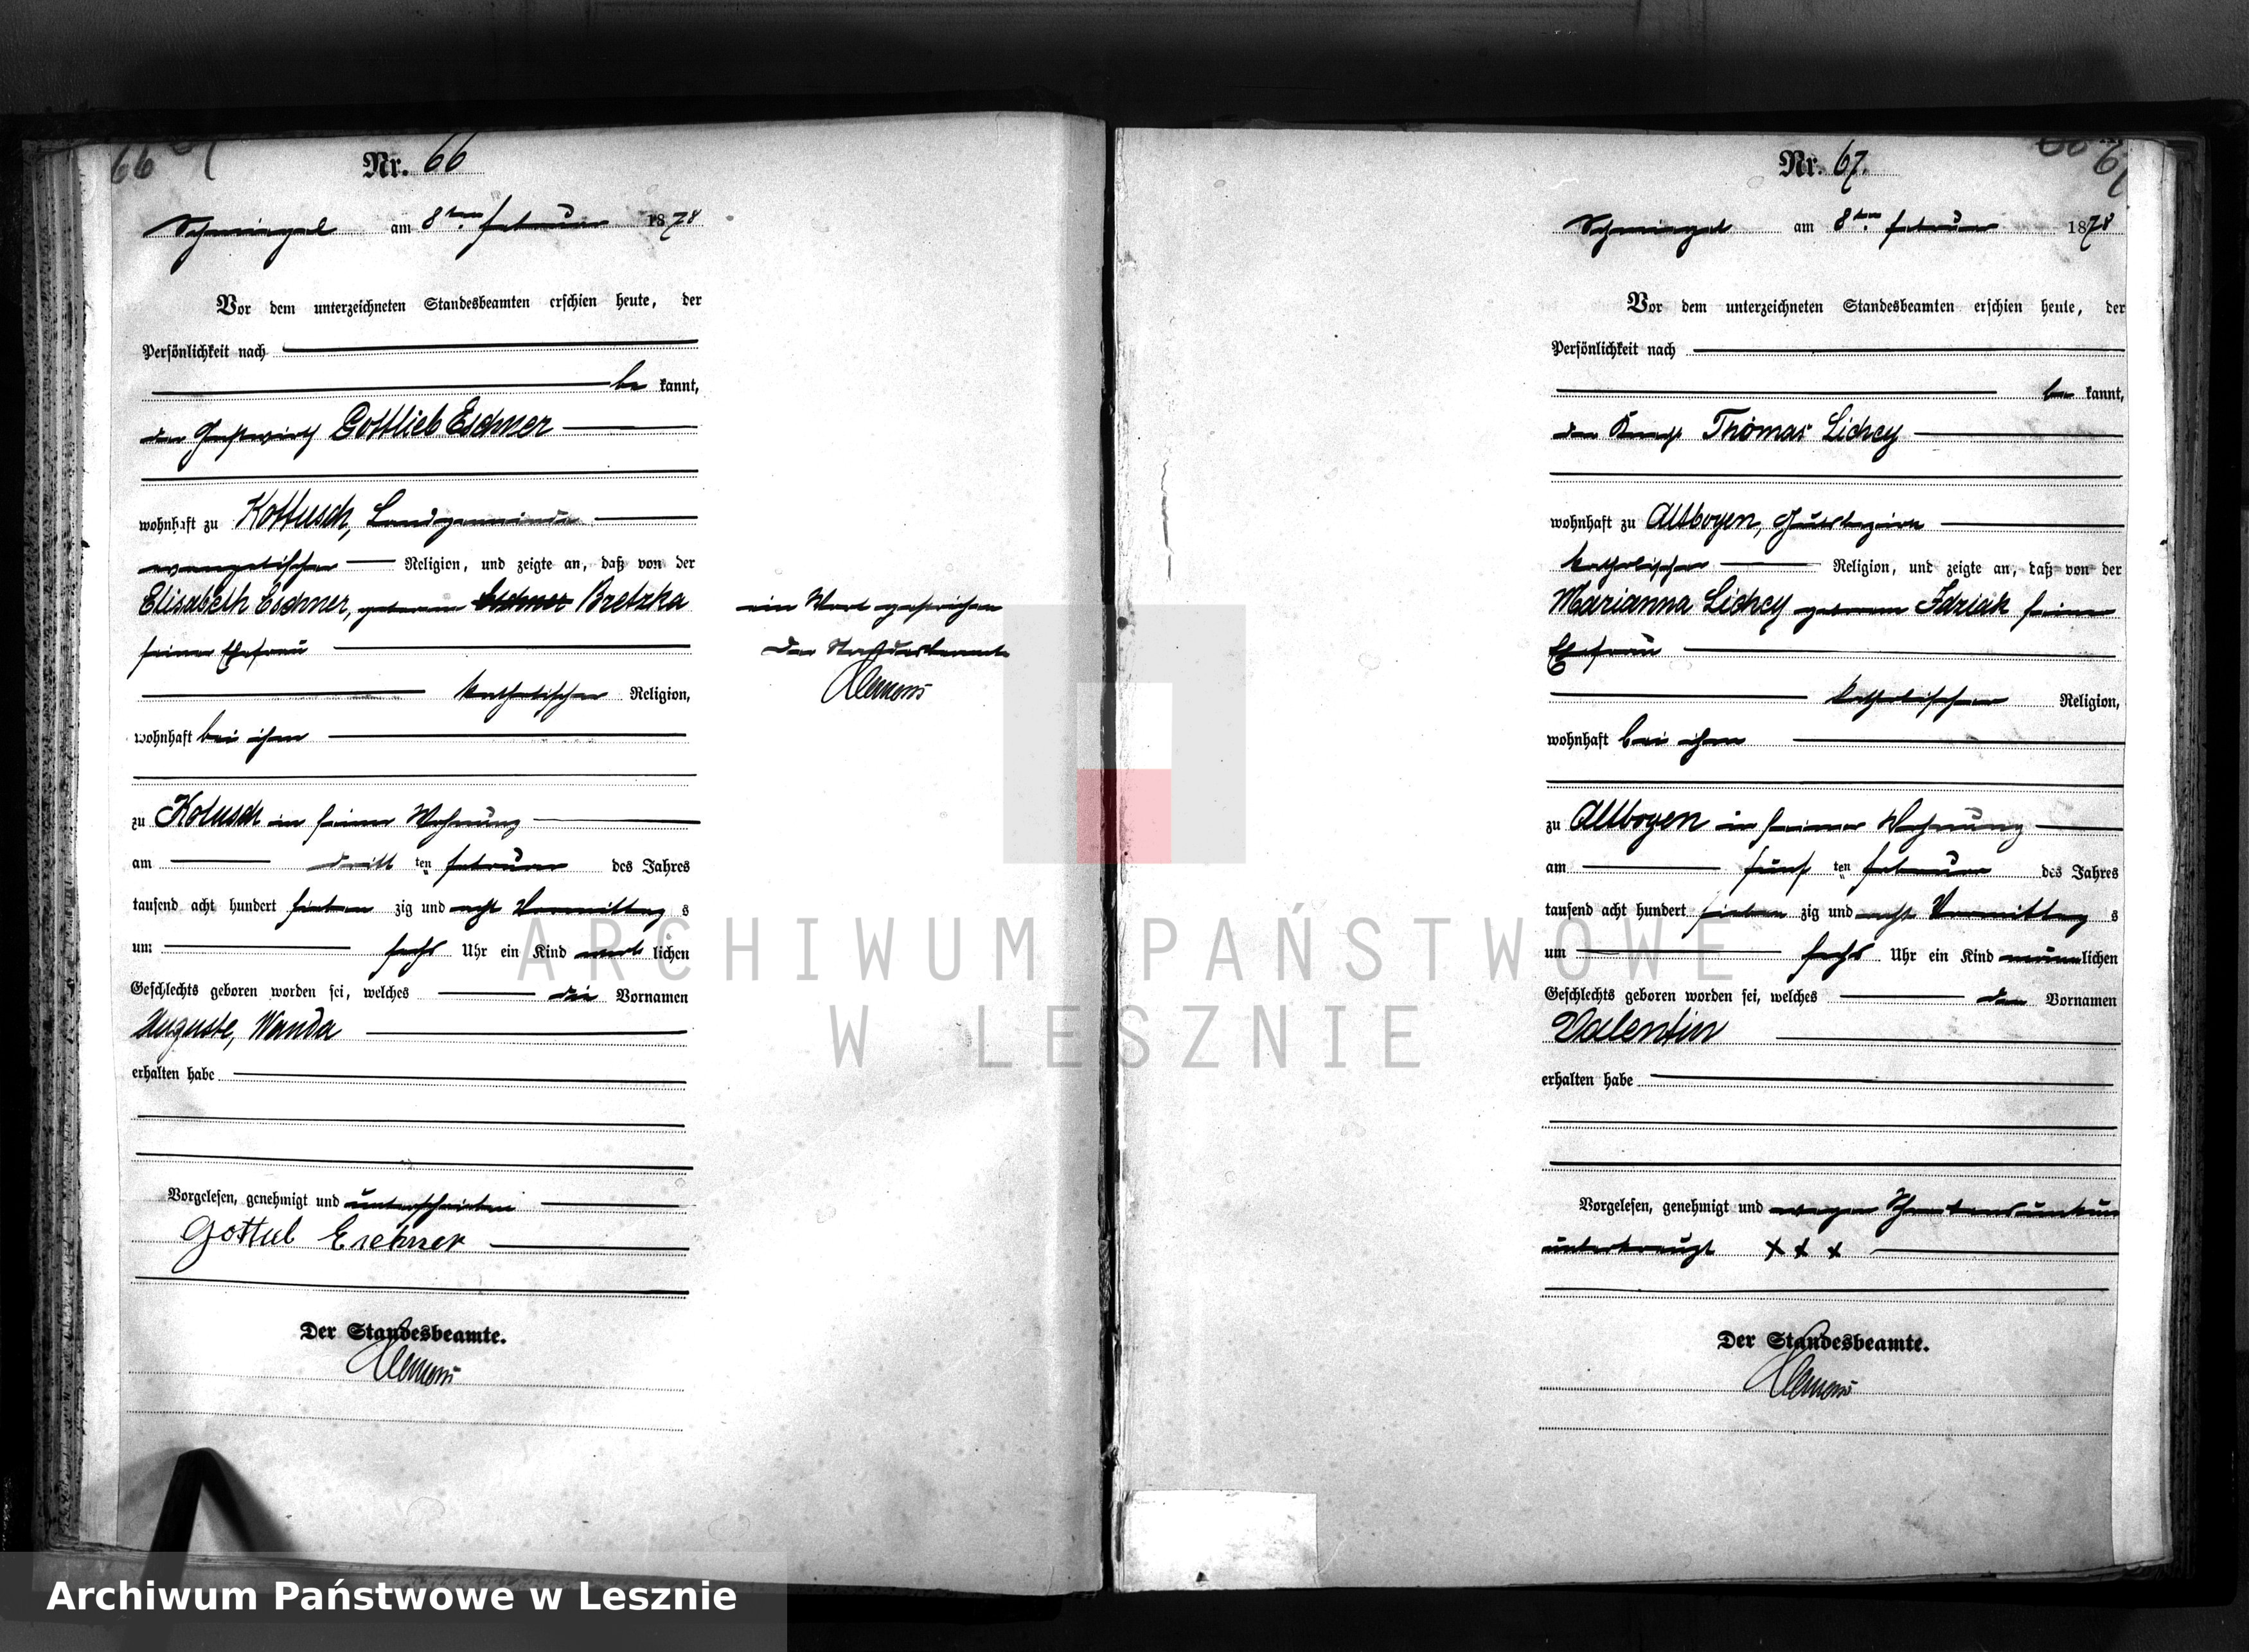 66
Nr. 66
Schmiegel am 8ten Februar 1878
Vor dem unterzeichneten Standesbeamten erschien heute, der
Persönlichkeit nach
be kannt,
der Gastwirth Gottlieb Eschner
wohnhaft zu Kottusch, Landgemeinde
evangelischer Religion, und zeigte an, daß von der
Elisabeth Eschner, geborene Eschner Bretzka
seiner Ehefrau
katholischer Religion,
wohnhaft bei ihm
zu Kotusch in seiner Wohnung
am dritt ten Februar des Jahres
tausend acht hundert sieben zig und acht Vormittag s
um sechs Uhr ein Kind weib lichen
Geschlechts geboren worden sei, welches die Vornamen
Auguste, Wanda
erhalten habe
Vorgelesen, genehmigt und unterschrieben
Gottlieb Eschner
Der Standesbeamte.
Clemens
ein Wort gestrichen
Der Standesbeamte
Clemens
67
Nr. 67.
Schmiegel am 8ten Februar 1878
Vor dem unterzeichneten Standesbeamten erschien heute, der
Persönlichkeit nach
be kannt,
der Knecht Thomas Lichey
wohnhaft zu Altboyen, Gutsbezirk
katholischer Religion, und zeigte an, daß von der
Marianna Lichey geborene Idziak seiner
Ehefrau
katholischer Religion,
wohnhaft bei ihm
zu Altboyen in seiner Wohnung
am fünf ten Februar des Jahres
tausend acht hundert sieben zig und acht Vormittag s
um sechs Uhr ein Kind männlichen
Geschlechts geboren worden sei, welches den Vornamen
Valentin
erhalten habe
Vorgelesen, genehmigt und wegen Schreibensunkun
unterkreuzt x x x
Der Standesbeamte.
Clemens
ARCHIWUM PAŃSTWOWE
W LESZNIE
Archiwum Państwowe w Lesznie